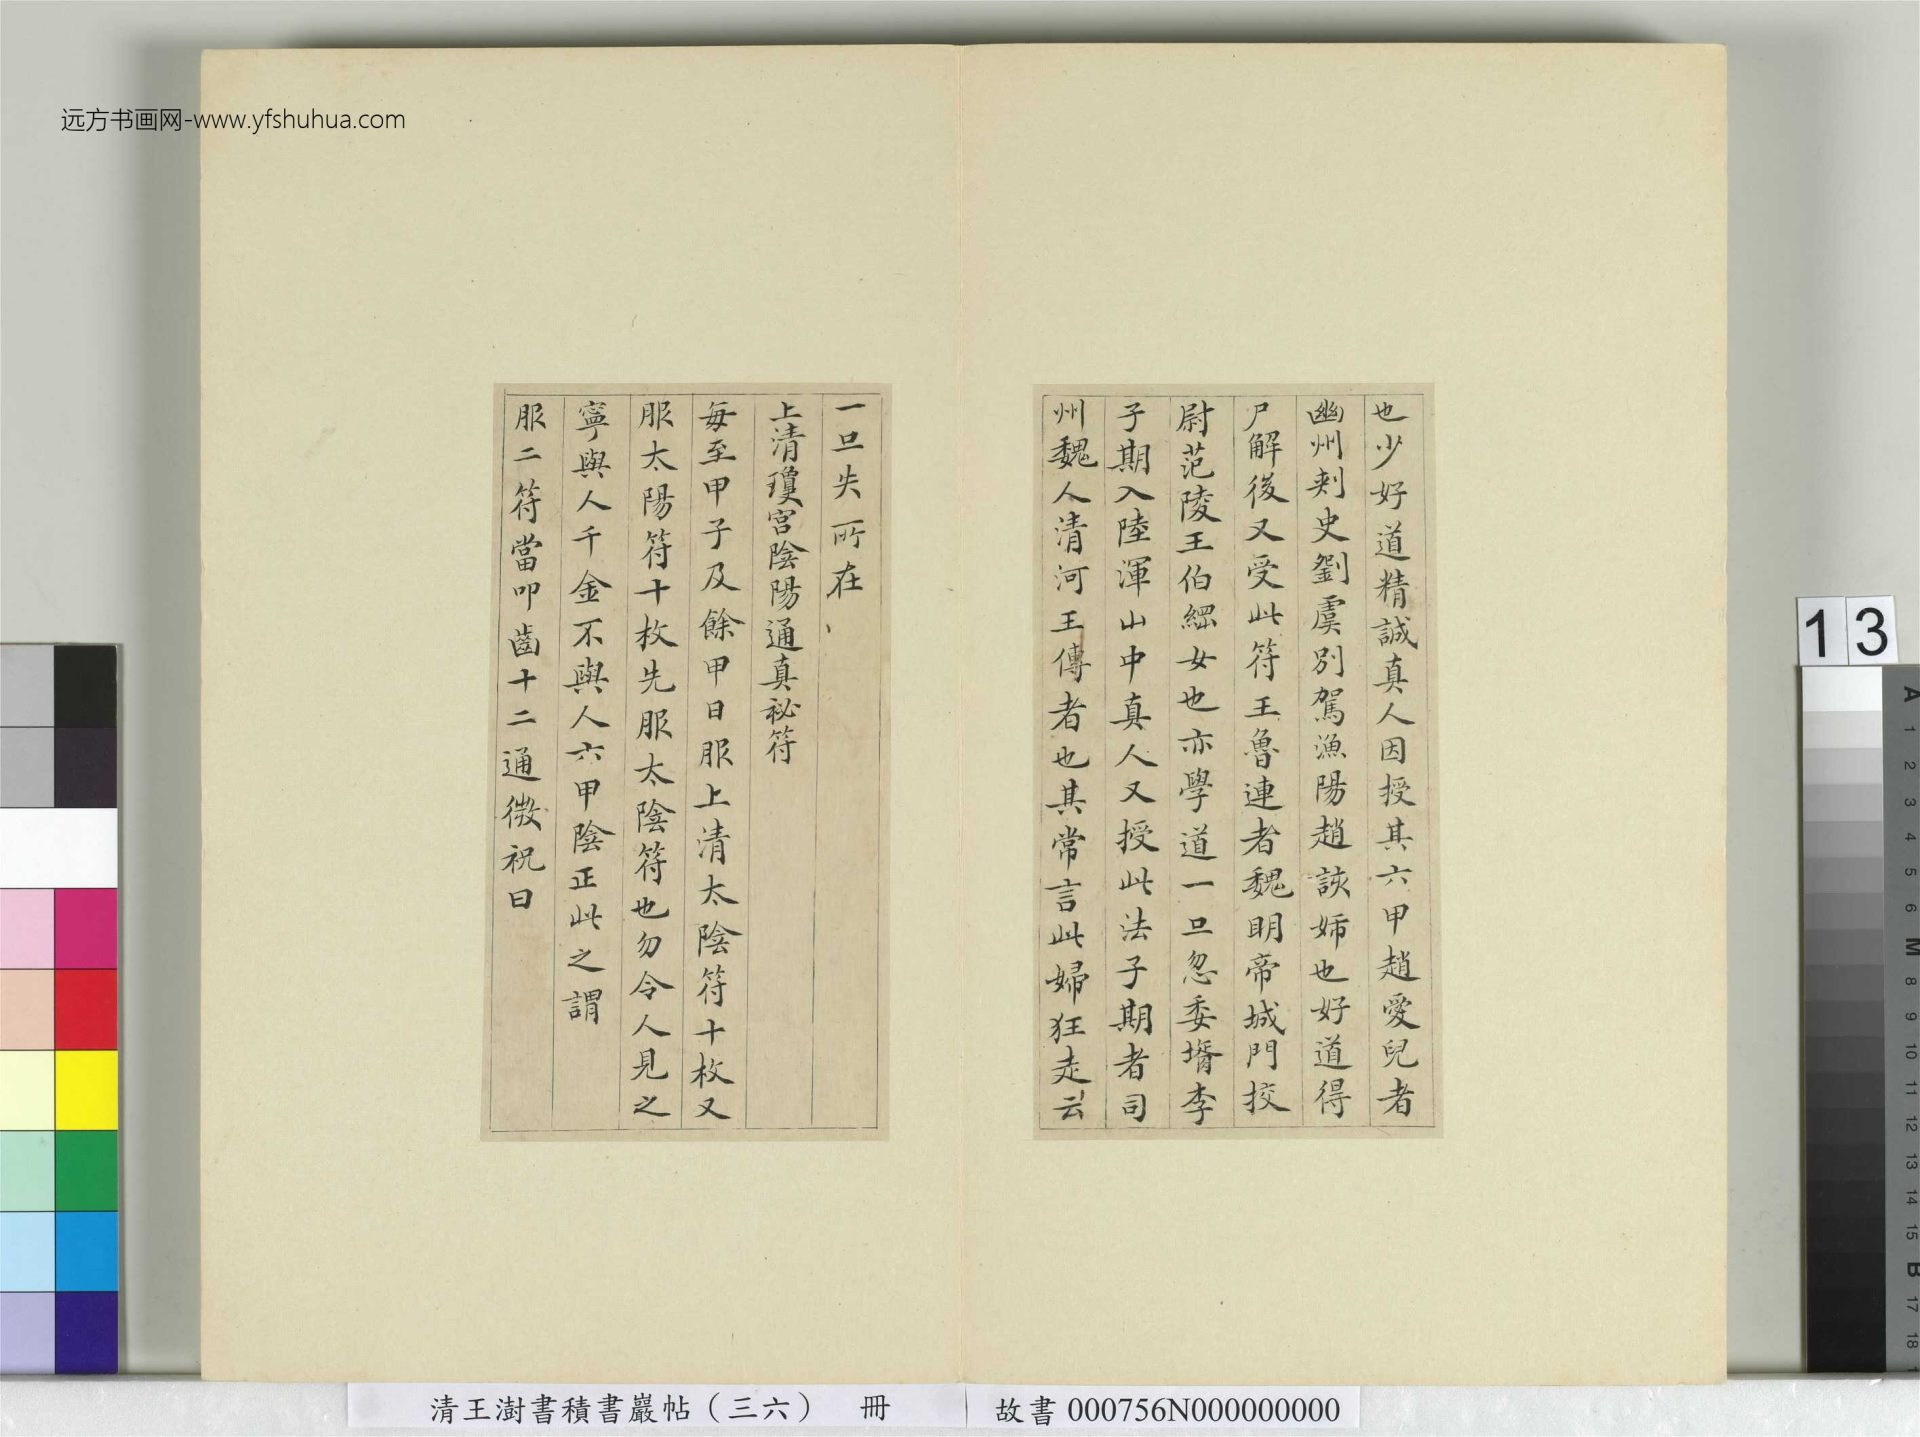 远方书画网-www.yfshuhua.com
也少好道精誠真人因授其六甲趙愛兒者
幽州刺史劉虞別駕漁陽趙該姉也好道得
尸解後又受此符王魯連者魏明帝城門挍
尉范陵王伯綱女也亦學道一旦忽委壻李
子期入陸渾山中真人又授此法子期者司
州魏人清河王傳者也其常言此婦狂走云
一旦失所在
上清瓊宮陰陽通真祕符
每至甲子及餘甲日服上清太陰符十枚又
服太陽符十枚先服太陰符也勿令人見之
寧與人千金不與人六甲陰正此之謂
服二符當叩齒十二通微祝曰
13
A
1
2
3
4
5
6
M
8
9
10
11
12
13
14
15
B
17
18
清王澍書積書巖帖（三六） 冊
故書 000756N000000000